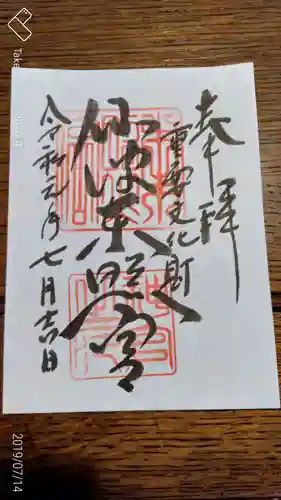 奉拝
重要文化財
仙波東照宮
令和元年七月十六日
2019/07/14